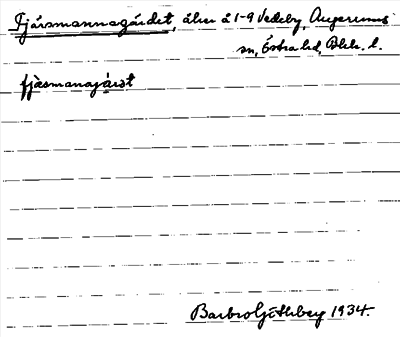 Fjärsmannagärdet, åker å 1-9 Vedeby, Augerums
sn, Östra hd, Blek. l.
fjæsmanajäɹət
Barbro Götlberg 1934.